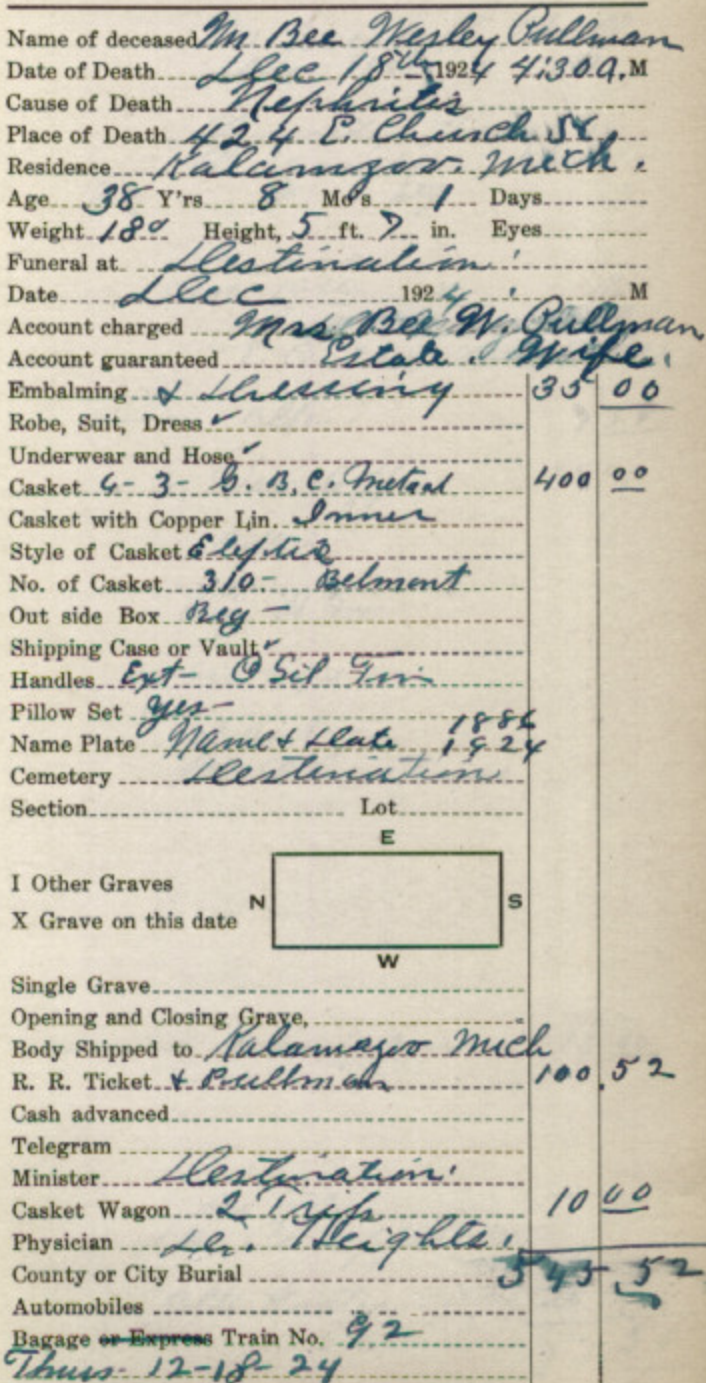 Name of deceased Mr Bee Wesley Pullman
Date of Death Dec 18th 1924 4:30 A. M
Cause of Death Nephritis
Place of Death 424 E. Church St.
Residence Kalamazoo. Mich.
Age 38 Y'rs 8 Mo's 1 Days
Weight 180 Height, 5 ft. 7 in. Eyes
Funeral at Destination
Date Dec 1924 M
Account charged Mrs Bee W. Pullman
Account guaranteed Estate. Wife.
Embalming & Dressing 35 00
Robe, Suit, Dress ✓
Underwear and Hose ✓
Casket 6-3- G. B. C. Metal 400 00
Casket with Copper Lin. Inner
Style of Casket
No. of Casket 310- Belmont
Out side Box Reg -
Shipping Case or Vault ✓
Handles Ext- Sil
Pillow Set yes-
Name Plate Name & Date 1886 1924
Cemetery Destination
Section Lot
E
I Other Graves
N S
X Grave on this date
W
Single Grave
Opening and Closing Grave,
Body Shipped to Kalamazoo Mich
R. R. Ticket & Pullman 100.52
Cash advanced
Telegram
Minister Destination
Casket Wagon 2 Trips 10 00
Physician Dr. Heights.
County or City Burial 545 52
Automobiles
Bagage or Express Train No. 92
Thurs- 12-18-24